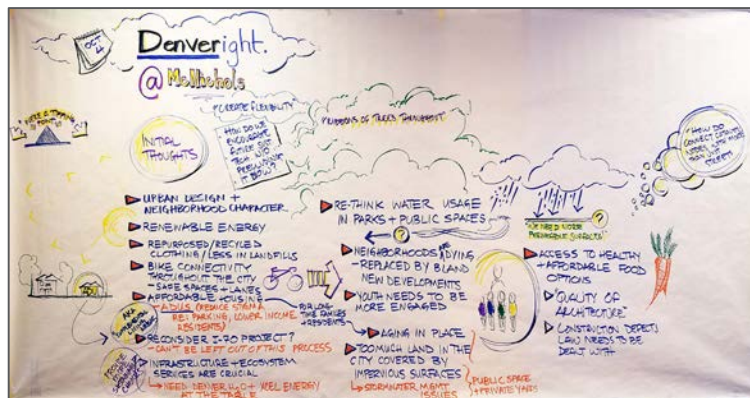 OCT
4
Denveright.
@ McNichols
"CREATE FLEXIBILITY"
INITIAL
THOUGHTS
HOW DO WE
ENCOURAGE
"RIBBONS OF TREES THROUGHOUT"
"HOW DO
CONNECT
NODES WITH MORE
THAN JUST
STREETS
URBAN DESIGN +
NEIGHBORHOOD CHARACTER
RENEWABLE ENERGY
REPURPOSED/RECYCLED
CLOTHING/LESS IN LANDFILLS
BIKE CONNECTIVITY
THROUGHOUT THE CITY
- SAFE SPACES + LANES
AFFORDABLE HOUSING
→ ADUS (REDUCE STIGMA
RE: PARKING, LOWER INCOME
RESIDENTS)
FOR LONG
TIME FAMILIES
+ RESIDENTS
AKA
RECONSIDER I-70 PROJECT?
- CAN'T BE LEFT OUT OF THIS PROCESS
INFRASTRUCTURE + ECOSYSTEM
SERVICES ARE CRUCIAL
→ NEED DENVER H2O + XCEL ENERGY
AT THE TABLE
RE-THINK WATER USAGE
IN PARKS + PUBLIC SPACES
?
NEIGHBORHOODS ARE DYING
- REPLACED BY BLAND
NEW DEVELOPMENTS
YOUTH NEEDS TO BE
MORE ENGAGED
AGING IN PLACE
TOO MUCH LAND IN THE
CITY COVERED BY
IMPERVIOUS SURFACES
→ STORMWATER MGMT
ISSUES
PUBLIC SPACE
+ PRIVATE YARDS
?
"WE NEED MORE
PERMEABLE SURFACES"
ACCESS TO HEALTHY
+ AFFORDABLE FOOD
OPTIONS
"QUALITY OF
ARCHITECTURE"
CONSTRUCTION DEFECTS
LAW NEEDS TO BE
DEALT WITH